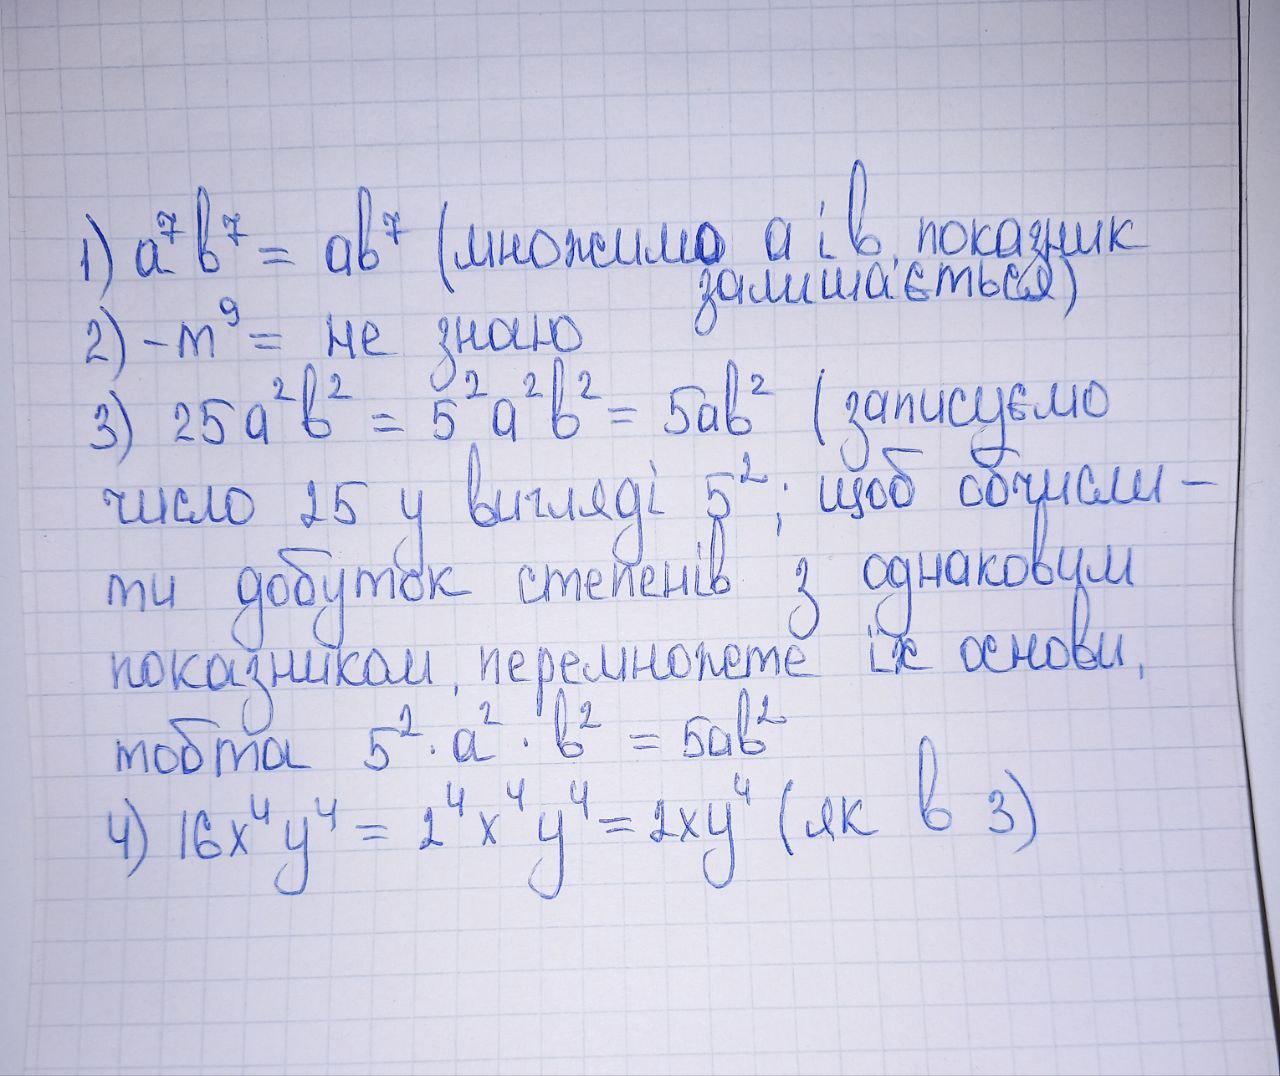 1) a⁷b⁷ = ab⁷ (множимо a і b, показник
залишається)
2) -m⁹ = не знаю
3) 25a²b² = 5²a²b² = 5ab² (записуємо
число 25 у вигляді 5²; щоб обчисли-
ти добуток степенів з однаковим
показником, перемножте їх основи,
тобто 5²·a²·b² = 5ab²
4) 16x⁴y⁴ = 2⁴x⁴y⁴ = 2xy⁴ (як в 3)